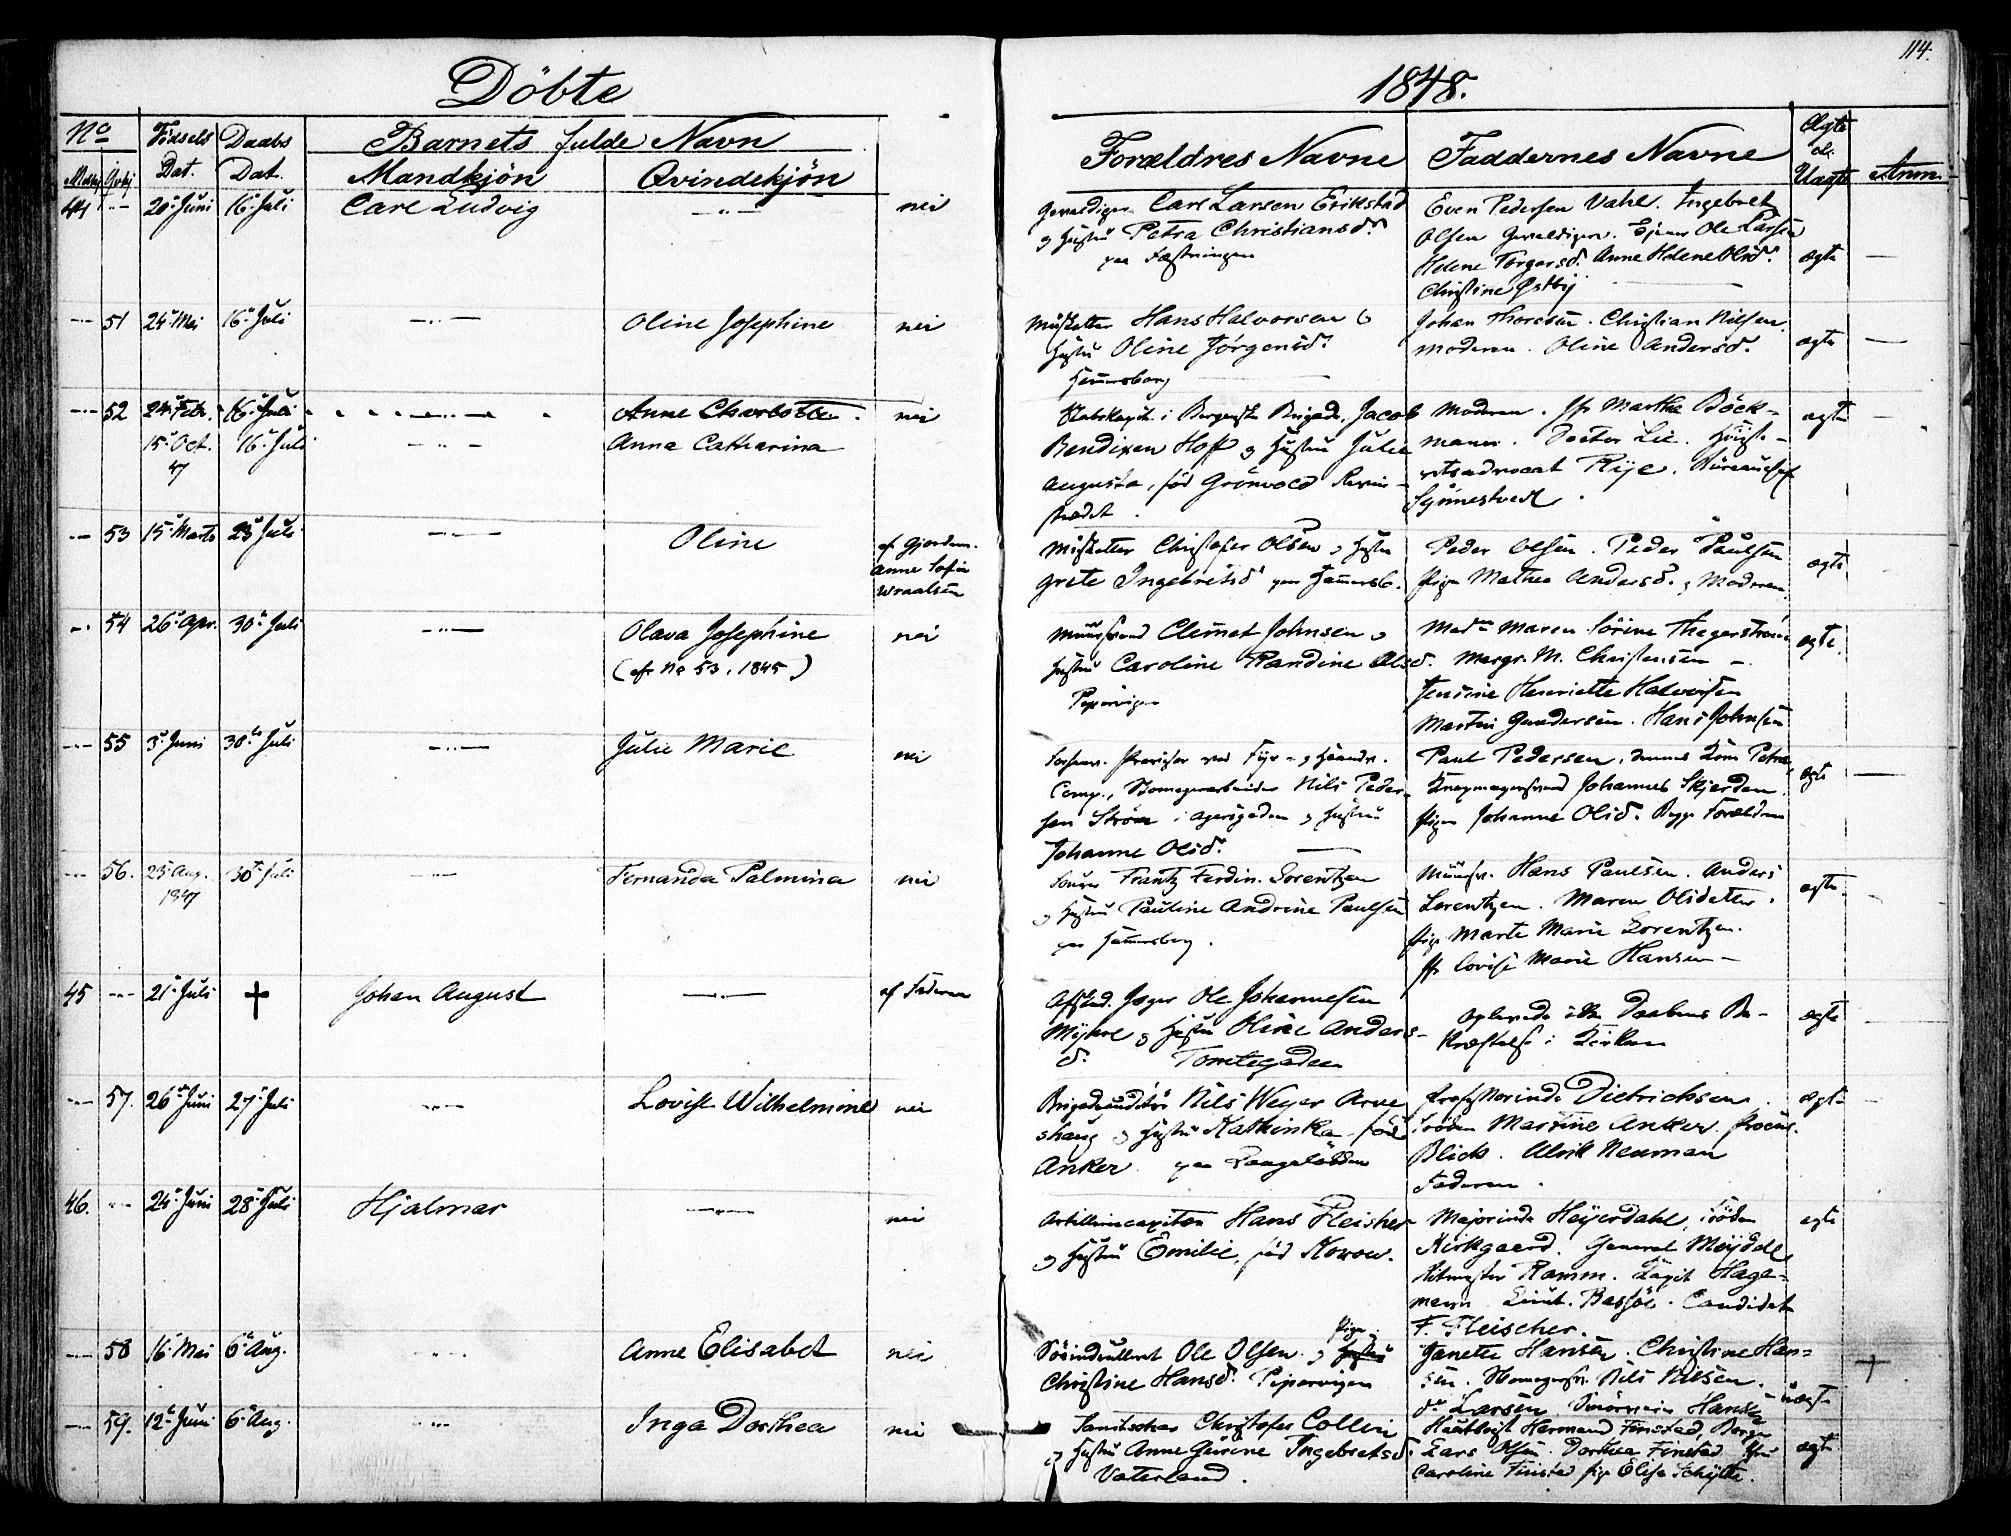 114.
Döbte
1848.
No
Mdkj Qvkj
Fødsels Dat.
Daabs Dat.
Barnets fulde Navn
Mandkjön
Qvindekjön
Forældres Navne
Faddernes Navne
Ægte el. Uægte
Anm.
44 20 Juni 16 Juli Carl Ludvig nei
Gevaldiger Carl Larsen Erikstad
og Hustru Petra Christiansd.
paa Fæstningen
Even Pedersen Vahl. Ingebret
Olsen Gevaldiger. Ejener Ole Larsen
Helene Torgersd. Anne Helene Olsd.
Christine Østby
ægte
51 24 Mai 16 Juli Oline Josephine nei
Musketter Hans Halvorsen &
Hustru Oline Jørgensd.
Hammersborg
Johan Thoresen. Christian Nilsen.
Moderen. Oline Andersd.
ægte
52 24 Febr. 16 Juli Anne Charlotte nei
15 Oct. 47 16 Juli Anna Catharina
Stabskapit. i Bergenske Brigade, Jacob
Bendixen Hoff og Hustru Julie
Augusta, fød Grönvold
Moderen. Jfr Martha Böck-
mann. Doctor Lie. Höieste-
retsadvocat Rye. Bureauchef
Synnestvedt.
ægte
53 15 Marts 23 Juli Oline
af Gjordem.
Anne Sofie
Wraalsen
Musketter Christofer Olsen og Hustru
Grete Ingebretsd. paa Hammersb.
Peder Olsen. Peder Paulsen
Pige Mathea Andersd. og Moderen.
ægte
54 26 Apr. 30 Juli Olava Josephine nei
(cfr No 53. 1845)
Muursvend Clemet Johnsen og
Hustru Caroline Randine Olsd.
Pipervigen
Mad. Maren Sørine Thegerstrøm
Margr. M. Christensen
Jensine Henriette Halvorsen
Martin Gundersen. Hans Johnsen
ægte
55 3 Juni 30 Juli Julie Marie nei
Comp., Skomagerarbeider Nils Peder-
sen Ström i Agersgaden og Hustru
Johanne Olsd.
Paul Pedersen, dennes Kone Petra
Knapmagersvend Johannes Skjerden.
Pigen Johanne Olsd. Begge Forældrene
ægte
56. 23 Aug. 1847 30 Juli Fernanda Palmina nei
Frantz Ferdin. Lorentzen
og Hustru Pauline Andrine Paulsen
paa Hammersborg.
Muursv. Hans Paulsen. Anders
Lorentzen. Maren Olsdatter.
Pige Marte Marie Lorentzen.
Jfr Lovise Marie Hansen
ægte
45 21 Juli † Johan August af Faderen
Afsked. Jæger Ole Johannesen
Myhre og Hustru Oline Anders-
d. Tomtegaden
Oplevede ikke Daabens Be-
kræftelse i Kirken
ægte
57. 26 Juni 27 Juli Lovise Wilhelmine nei
Brigadeauditør Nils Weyer Arve
shaug og Hustru Kathinka, född
Anker. paa
Professorinde Dietrichsen.
Frøken Martine Anker. Procur.
Blich. Alrik Neuman
Faderen.
ægte
46. 24 Juni 28 Juli Hjalmar nei
Artillericapitain Hans Fleischer
og Hustru Emilie, fød Korow.
Majorinde Heyerdahl, Frøken
Kirkgaard. General Møydel
Ritmester Ramm. Kapit Hage-
mann Lieut. Bassøe. Candidat
F. Fleischer.
ægte
58 16 Mai 6 Aug. Anne Elisabet nei
Ole Olsen og Hustru Pige
Christine Hansd. Pipervigen
Janette Hansen. Christine Han-
sen. Skomagersv. Nils Nilsen.
Larsen Hansen
uægte
†
59. 12 Juni 6 Aug. Inga Dorthea nei
Christofer Collin
og Hustru Anne Gurine Ingebretsd.
Vaterland.
Herman Finstad,
Lars Olsen. Dorthea Finstad
Caroline Finstad Pige Elise Schytte.
ægte